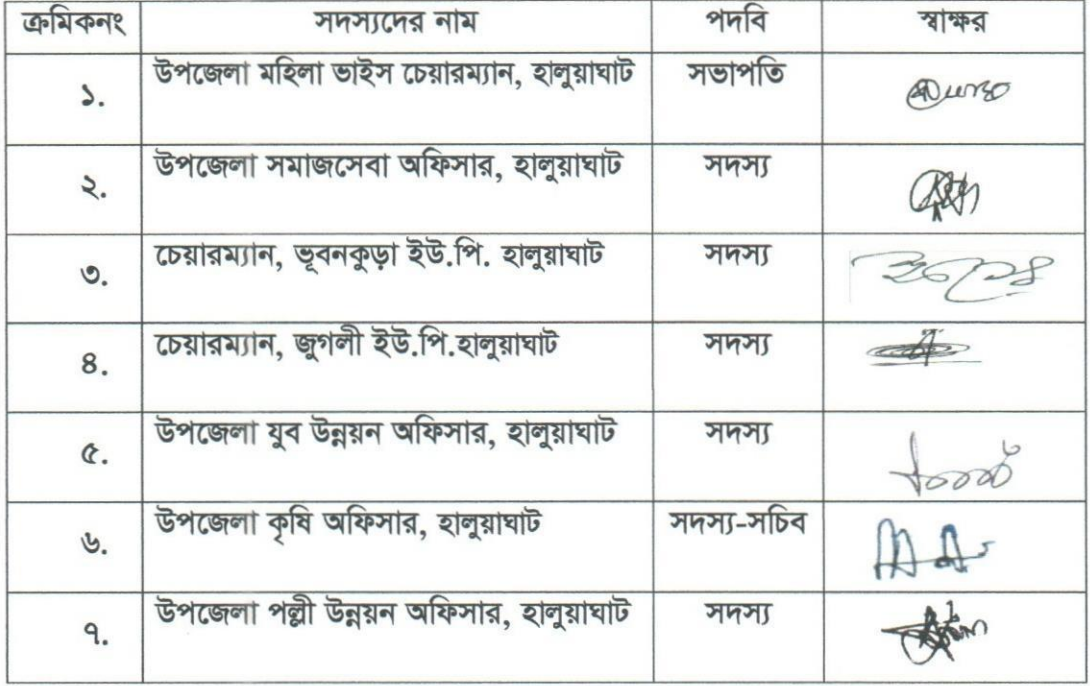 ক্রমিকনং সদস্যদের নাম পদবি স্বাক্ষর
১. উপজেলা মহিলা ভাইস চেয়ারম্যান, হালুয়াঘাট সভাপতি
২. উপজেলা সমাজসেবা অফিসার, হালুয়াঘাট সদস্য
৩. চেয়ারম্যান, ভূবনকুড়া ইউ.পি. হালুয়াঘাট সদস্য
৪. চেয়ারম্যান, জুগলী ইউ.পি.হালুয়াঘাট সদস্য
৫. উপজেলা যুব উন্নয়ন অফিসার, হালুয়াঘাট সদস্য
৬. উপজেলা কৃষি অফিসার, হালুয়াঘাট সদস্য-সচিব
৭. উপজেলা পল্লী উন্নয়ন অফিসার, হালুয়াঘাট সদস্য